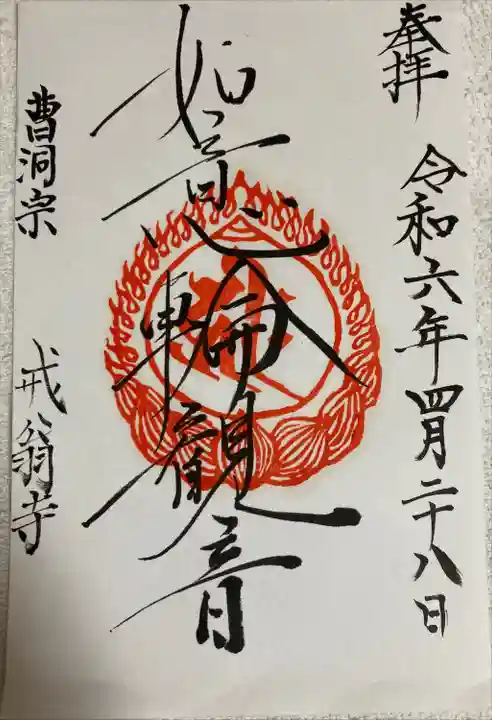 奉拝
令和六年四月二十八日
如意輪観音
曹洞宗
戒翁寺